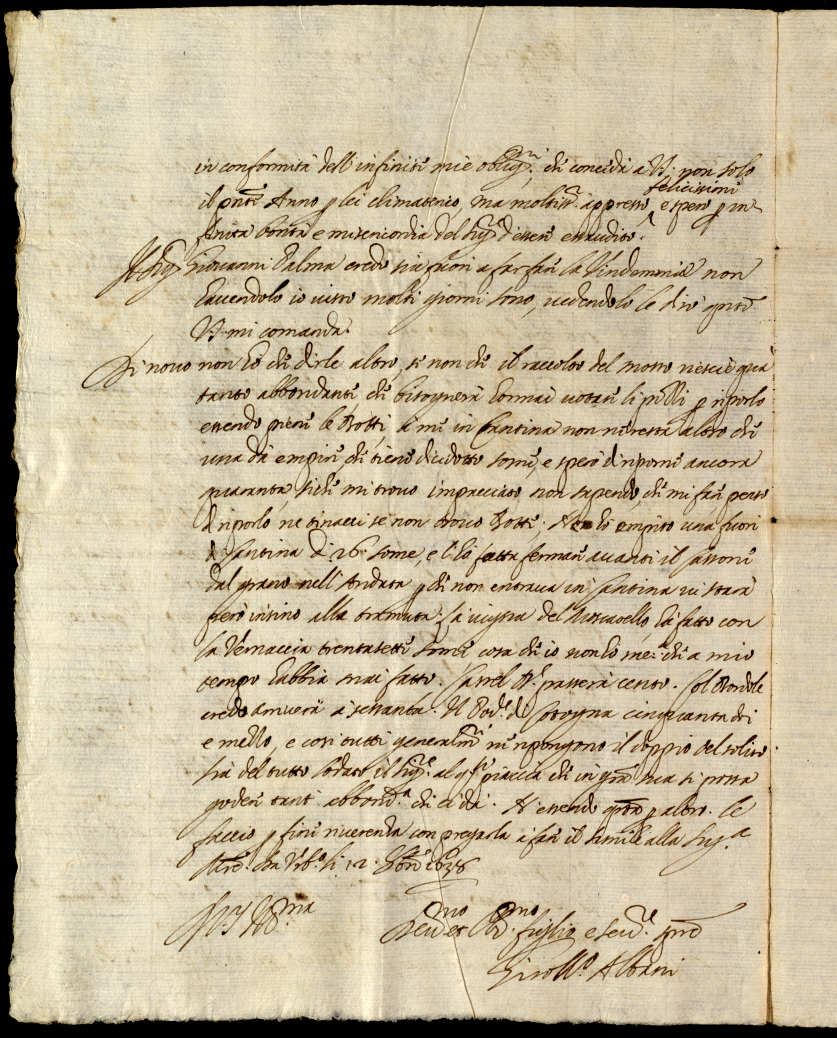 in conformità dell'infinite mie oblig.ni, che conceda a V.S. non solo
il pnte Anno p lei climaterico, ma moltiss.i appresso felicissimi e spero p in-
finita bontà e misericordia del Sig.re d'essere essaudito.
Il Sig.r Giovanni Palma credo sia fuori a far fare la Vindemmia non
havendolo io visto molti giorni sono, vedendolo le dirò qnto
V.S. mi comanda.
Di novo non hò che dirle altro, se non che il raccolto del mosto riesce qua
tanto abbondante, che bisognerà hormai votare li pilli p riporlo
essendo piene le Botti, a me in Cantina non ne resta altro che
una da empire, che tiene dicidotto some, e spero di riporne ancora
quaranta, siche mi trovo impacciato non sapendo, che mi fare penso
di riporlo ne tinacci se non trovo Botti. Ne hò empito una fuori
di Cantina di 26. some, e l'hò fatta fermare avanti il
dal grano nell'Andata p che non entrava in Cantina vi starà
però insino alla tramuta. La vigna del Moscatello hà fatto con
la Vernaccia trentasette some cosa che io non hò me.a che a mio
tempo habbia mai fatto. passerà cento. Col Bordole
credo arriverà a settanta. Il Pod.e di cinquantadoi
e mezzo, e così tutti generalm.te ne ripongono il doppio del solito
sia del tutto lodato il Sig.re al q.le piaccia che in gra sua si possa
godere tant' abbond.a che ci dà. Ne essendo qsta p altro. le
faccio p fine riverenza con pregarla a fare il simile alla Sig.a
M.re. Da Urb.o li 12. 8bre 1638
Di V.S. Ill.ma
Dev.mo et Ob.mo figlio e serv.re pre
Girol.o Albani